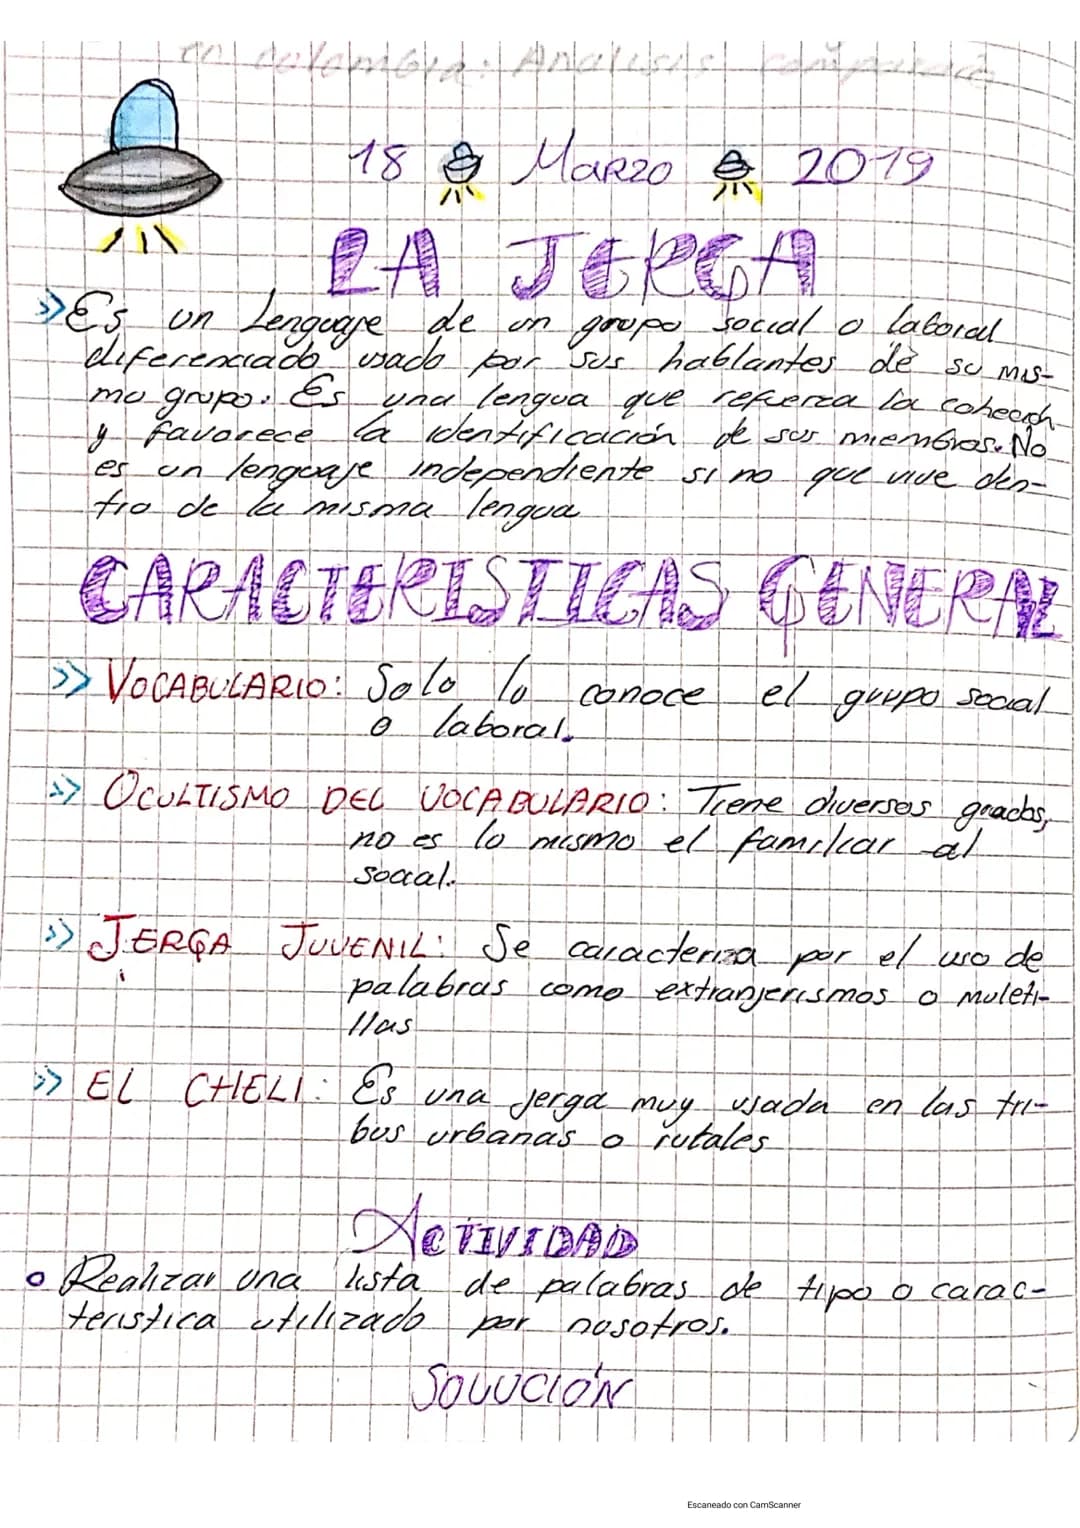 en colombia: Analisis
18 Marzo 2019
LA JERGA
>> Es un Lenguaje de un grupo social o laboral
diferenciado usado por sus hablantes de su mis-
mo grupo. Es una lengua que refuerza la coheech
y favorece la identificación de sus miembros. No
es un lenguaje independiente si no que vive den-
tro de la misma lengua
CARACTERISTICAS GENERAL
>> VOCABULARIO: Solo lo conoce el grupo social
o laboral.
>> OCULTISMO DEL VOCABULARIO: Tiene diversos grados,
no es lo mismo el familiar al
social.
>> JERGA JUVENIL: Se caracteriza por el uso de
palabras como extranjerismos o muleti-
llas
>> EL CHELI: Es una jerga muy usada en las tri-
bus urbanas o rurales
ACTIVIDAD
o Realizar una lista de palabras de tipo o carac-
teristica utilizado por nosotros.
SOLUCIÓN
Escaneado con CamScanner